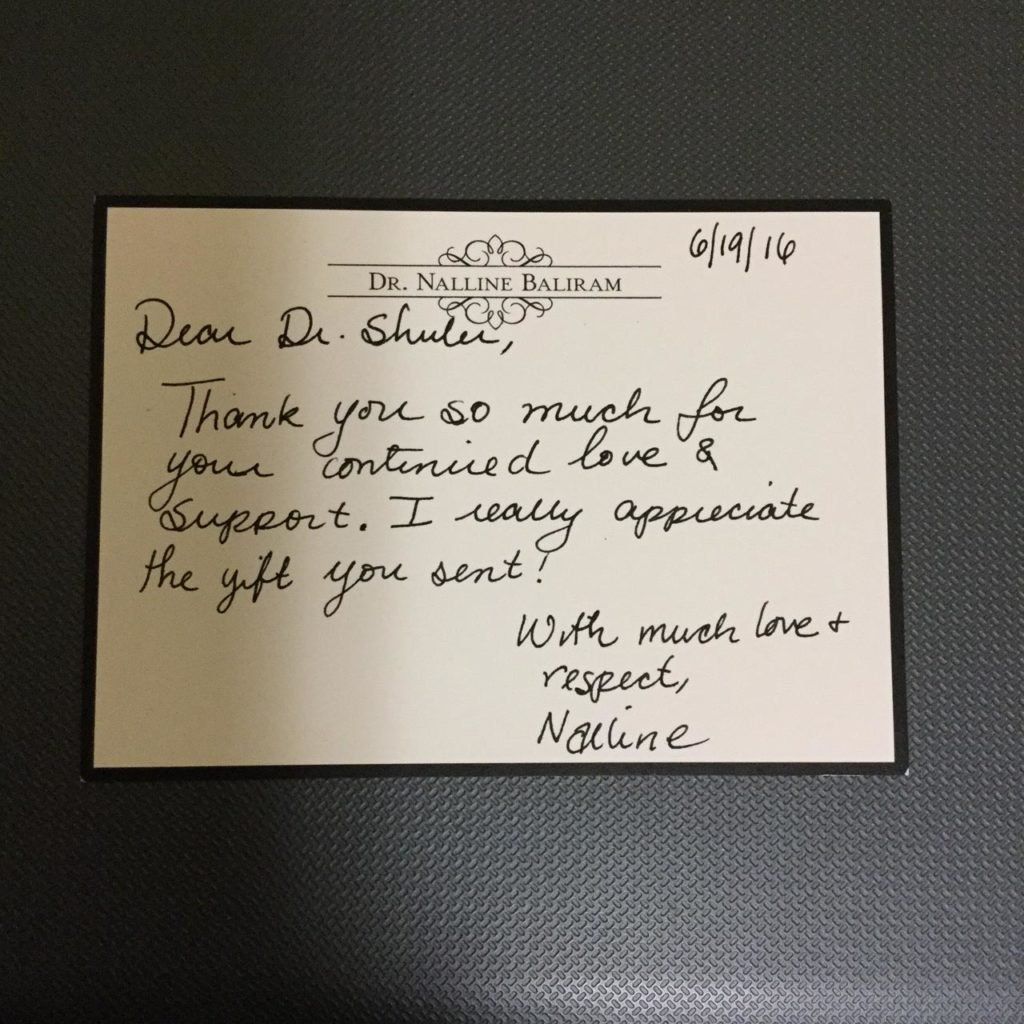 6/19/16
DR. NALLINE BALIRAM
Dear Dr. Shuler,
Thank you so much for
your continued love &
support. I really appreciate
the gift you sent!
With much love +
respect,
Nalline